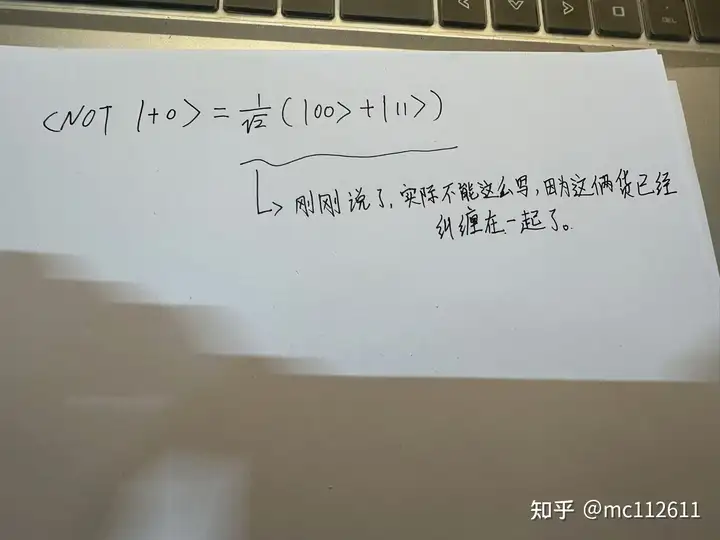 CNOT |+0> = 1/√2 (|00> + |11>)
刚刚说了，实际不能这么写，因为这俩货已经
纠缠在一起了。
知乎 @mc112611